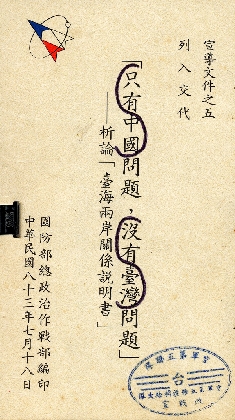 宣導文件之五
列入交代
「只有中國問題，沒有臺灣問題」
——析論「臺海兩岸關係說明書」
國防部總政治作戰部編印
中華民國八十三年七月十八日
台